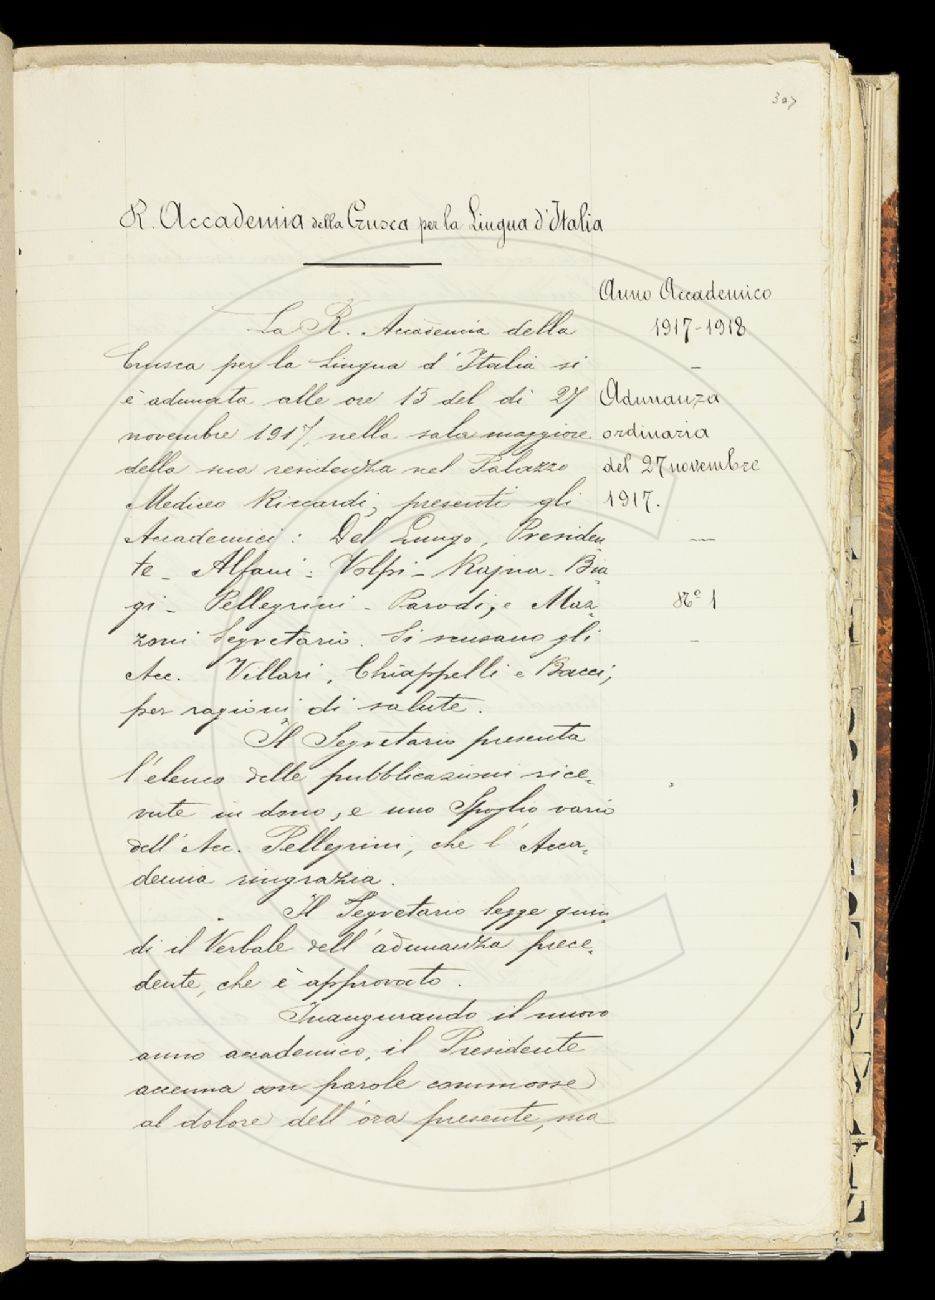 307
R. Accademia della Crusca per la Lingua d'Italia
Anno Accademico
1917-1918
Adunanza
ordinaria
del 27 novembre
1917.
N.º 1
La R. Accademia della
Crusca per la Lingua d'Italia si
è adunata alle ore 15 del dì 27
novembre 1917, nella sala maggiore
della sua residenza nel Palazzo
Mediceo Riccardi, presenti gli
Accademici: Del Lungo, Presiden-
te - Alfani - Volpi - Rajna - Bia-
gi - Pellegrini - Parodi, e Maz-
zoni Segretario. Si scusano gli
Acc. Villari, Chiappelli e Bacci,
per ragioni di salute.
Il Segretario presenta
l'elenco delle pubblicazioni rice-
vute in dono, e uno Spoglio vario
dell'Acc. Pellegrini, che l'Acca-
demia ringrazia.
Il Segretario legge quin-
di il Verbale dell'adunanza prece-
dente, che è approvato.
Inaugurando il nuovo
anno accademico, il Presidente
accenna con parole commosse
al dolore dell'ora presente, ma